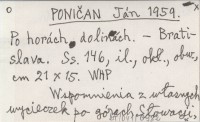 PONIČAN Ján 1959.
Po horách, dolinách. – Brati-
slava. Ss. 146, il., okł., obw.,
cm 21 x 15. WHP
Wspomnienia z własnych
wycieczek po górach Słowacji.